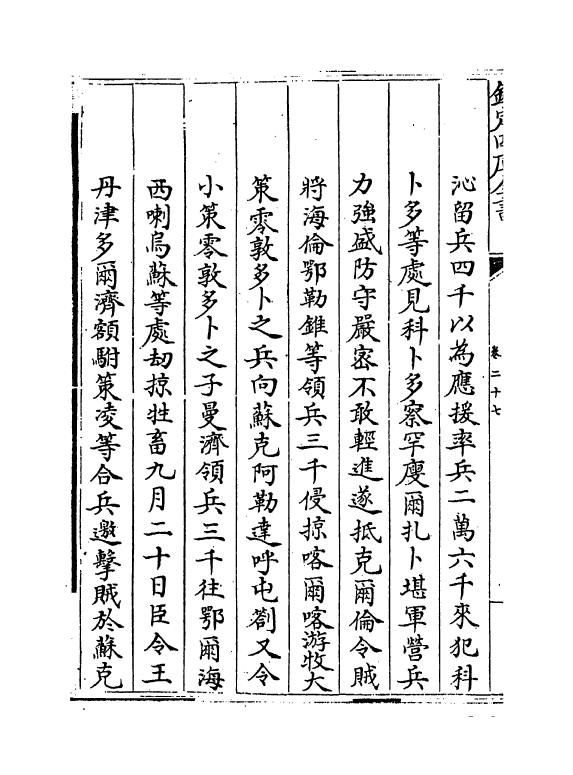 欽定四庫全書
卷二十七
沁留兵四千以為應援率兵二萬六千來犯科
卜多等處見科卜多察罕廋爾扎卜堪軍營兵
力強盛防守嚴密不敢輕進遂抵克爾倫令賊
將海倫鄂勒錐等領兵三千侵掠喀爾喀游牧大
策零敦多卜之兵向蘇克阿勒達呼屯劄又令
小策零敦多卜之子曼濟領兵三千往鄂爾海
西喇烏蘇等處刧掠牲畜九月二十日臣令王
丹津多爾濟額駙策凌等合兵邀擊賊於蘇克